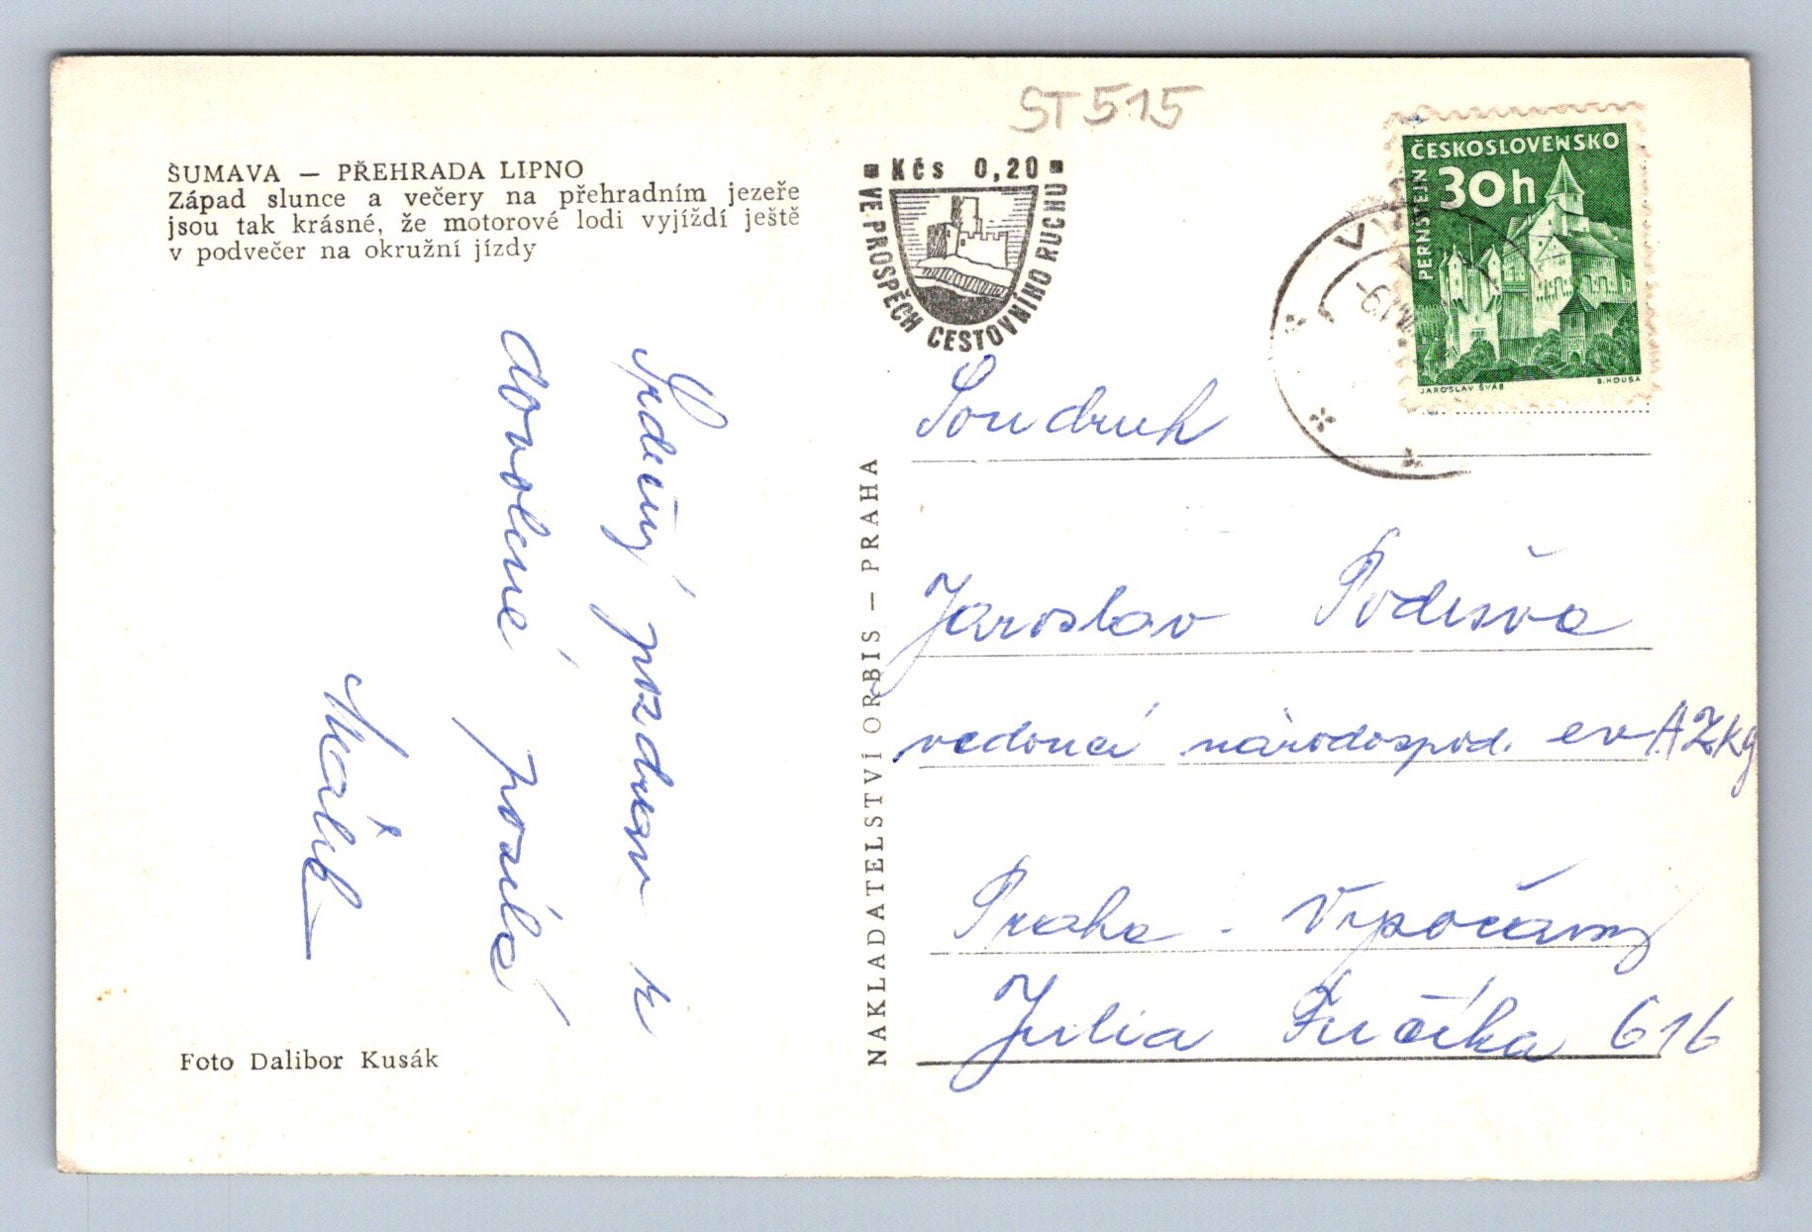 ST 515
ŠUMAVA — PŘEHRADA LIPNO
Západ slunce a večery na přehradním jezeře
jsou tak krásné, že motorové lodi vyjíždí ještě
v podvečer na okružní jízdy
Kčs 0,20
VE PROSPĚCH CESTOVNÍHO RUCHU
ČESKOSLOVENSKO
30h
PERNŠTEJN
JAROSLAV ŠVÁB
B. HOUSA
Srdečný pozdrav z
dovolené posílá
NAKLADATELSTVÍ ORBIS — PRAHA
Soudruh
Jaroslav Podešva
vedoucí národospod.
Praha - Vysočany
Julia Fučíka 616
Foto Dalibor Kusák